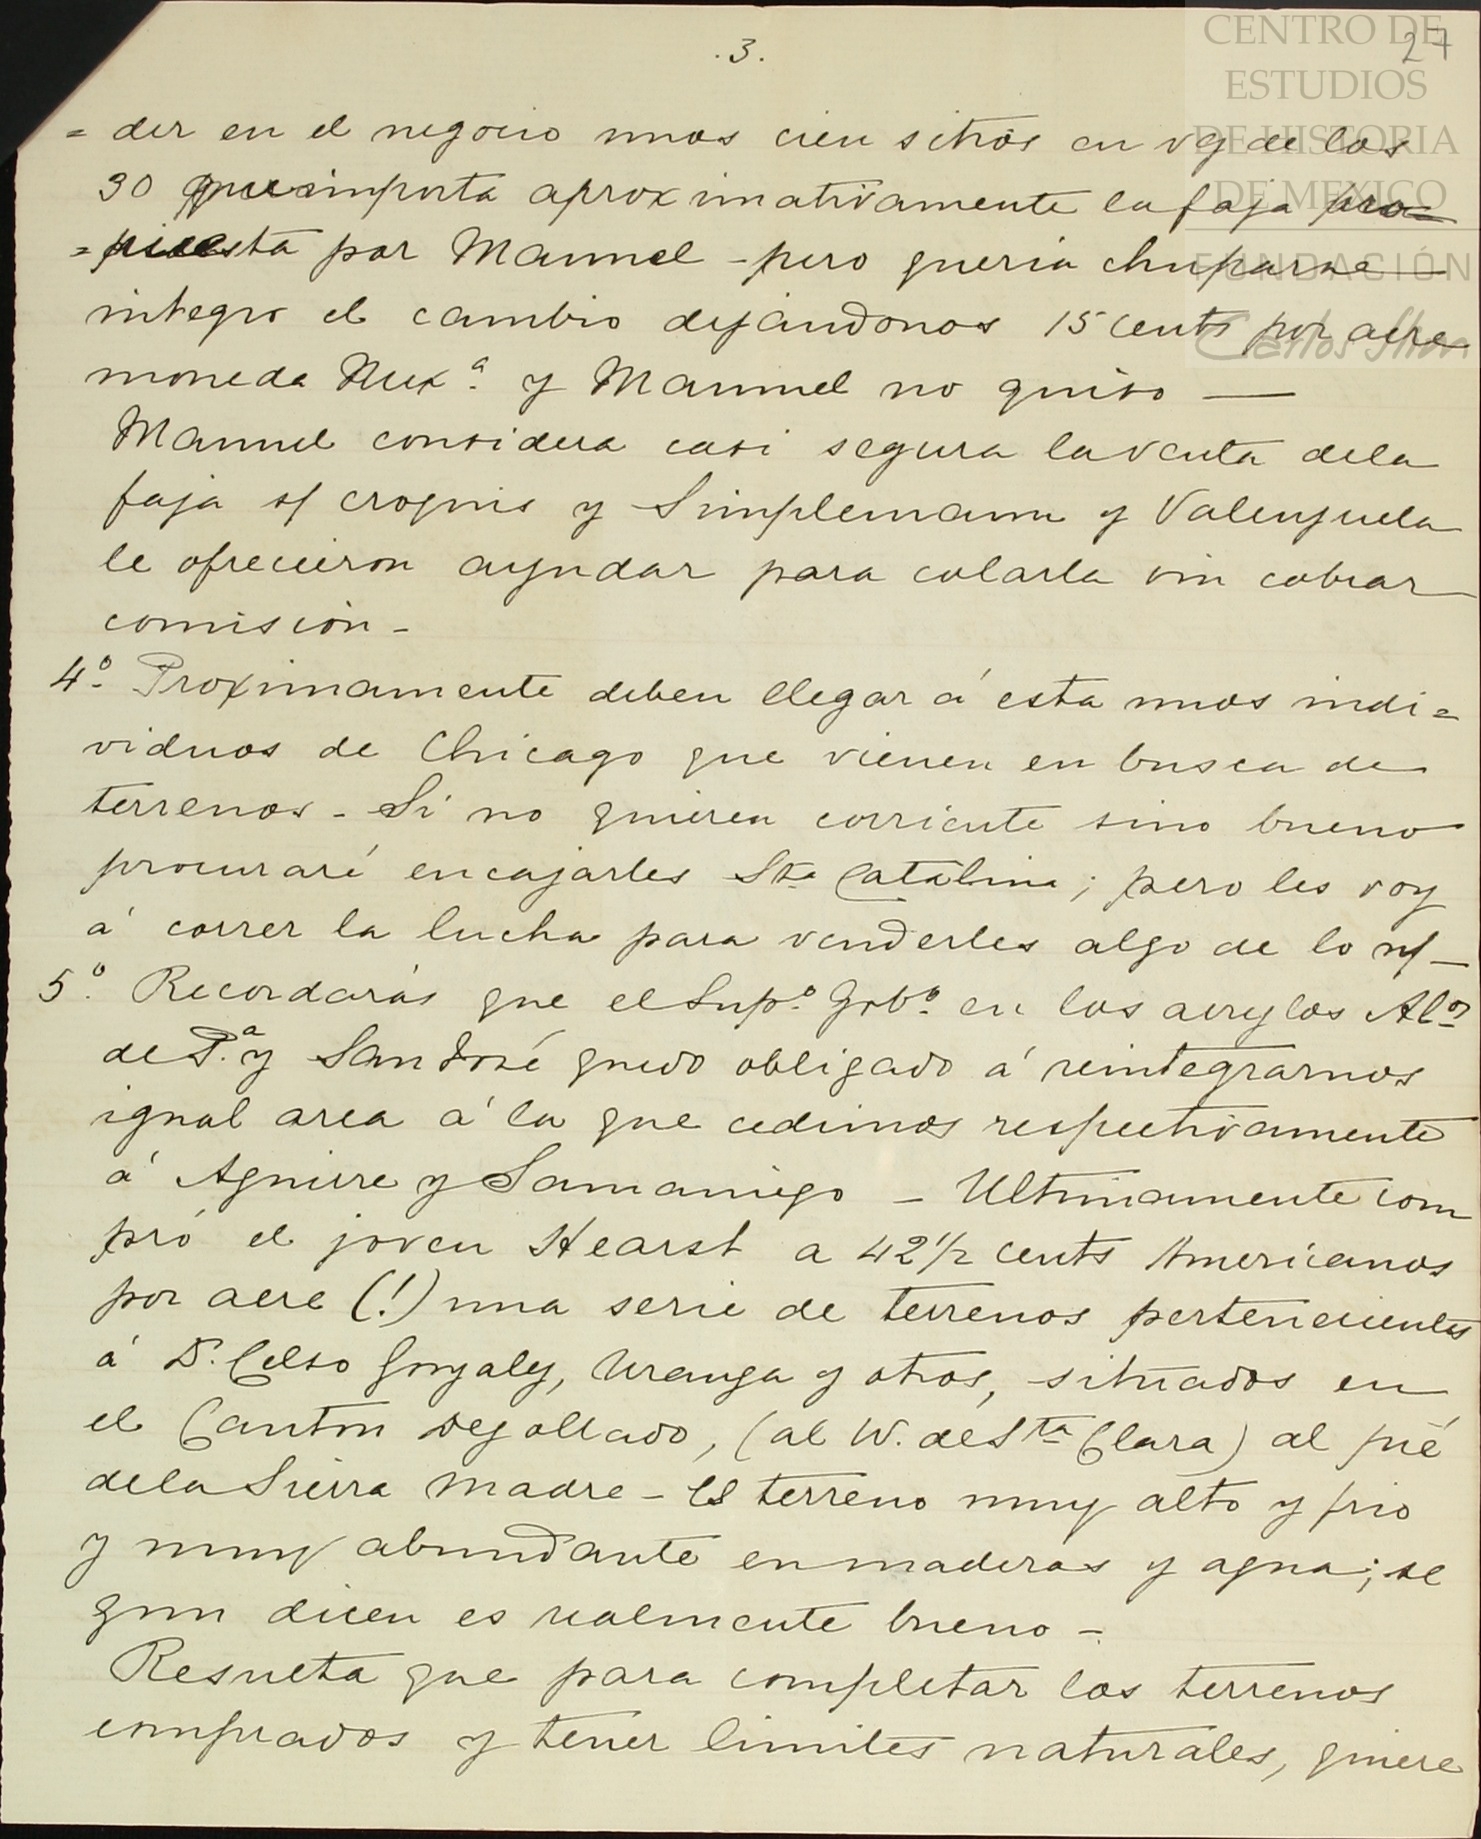 .3.
27
CENTRO DE
ESTUDIOS
DE HISTORIA
DE MEXICO
FUNDACIÓN
Carlos Slim
= der en el negocio unos cien sitios en vz de los
30 que importa aproximativamente la faja pro=
=puesta por Manuel - pero queria chuparse
integro el cambio dejándonos 15 cents por acre
moneda Mexª. y Manuel no quiso —
Manuel considera casi segura la venta dela
faja s/ croquis y Simplemann y Valenzuela
le ofrecieron ayudar para colarla sin cobrar
comisión -
4º. Proximamente deben llegar á esta unos indi=
viduos de Chicago que vienen en busca de
terrenos - Si no quieren corriente sino bueno
procuraré encajarles Sta Catalina; pero les voy
á correr la lucha para venderles algo de lo n/ —
5º. Recordarás que el Supº. Gobº. en los arreglos
de P.ª y San José quedo obligado á reintegrarnos
igual area á la que cedimos respectivamente
á Aguirre y Samaniego - Ultimamente com
pró el joven Hearst a 42 1/2 cents Americanos
por acre (!) una serie de terrenos pertenecientes
á D. Celso Gonzalez, Uranga y otros, situados en
el Canton Degollado, (al W. de Sta Clara) al pié
dela Sierra Madre - Es terreno muy alto y frio
y muy abundante en maderas y agua; se
gun dicen es realmente bueno -
Resulta que para completar los terrenos
comprados y tener limites naturales, quiere